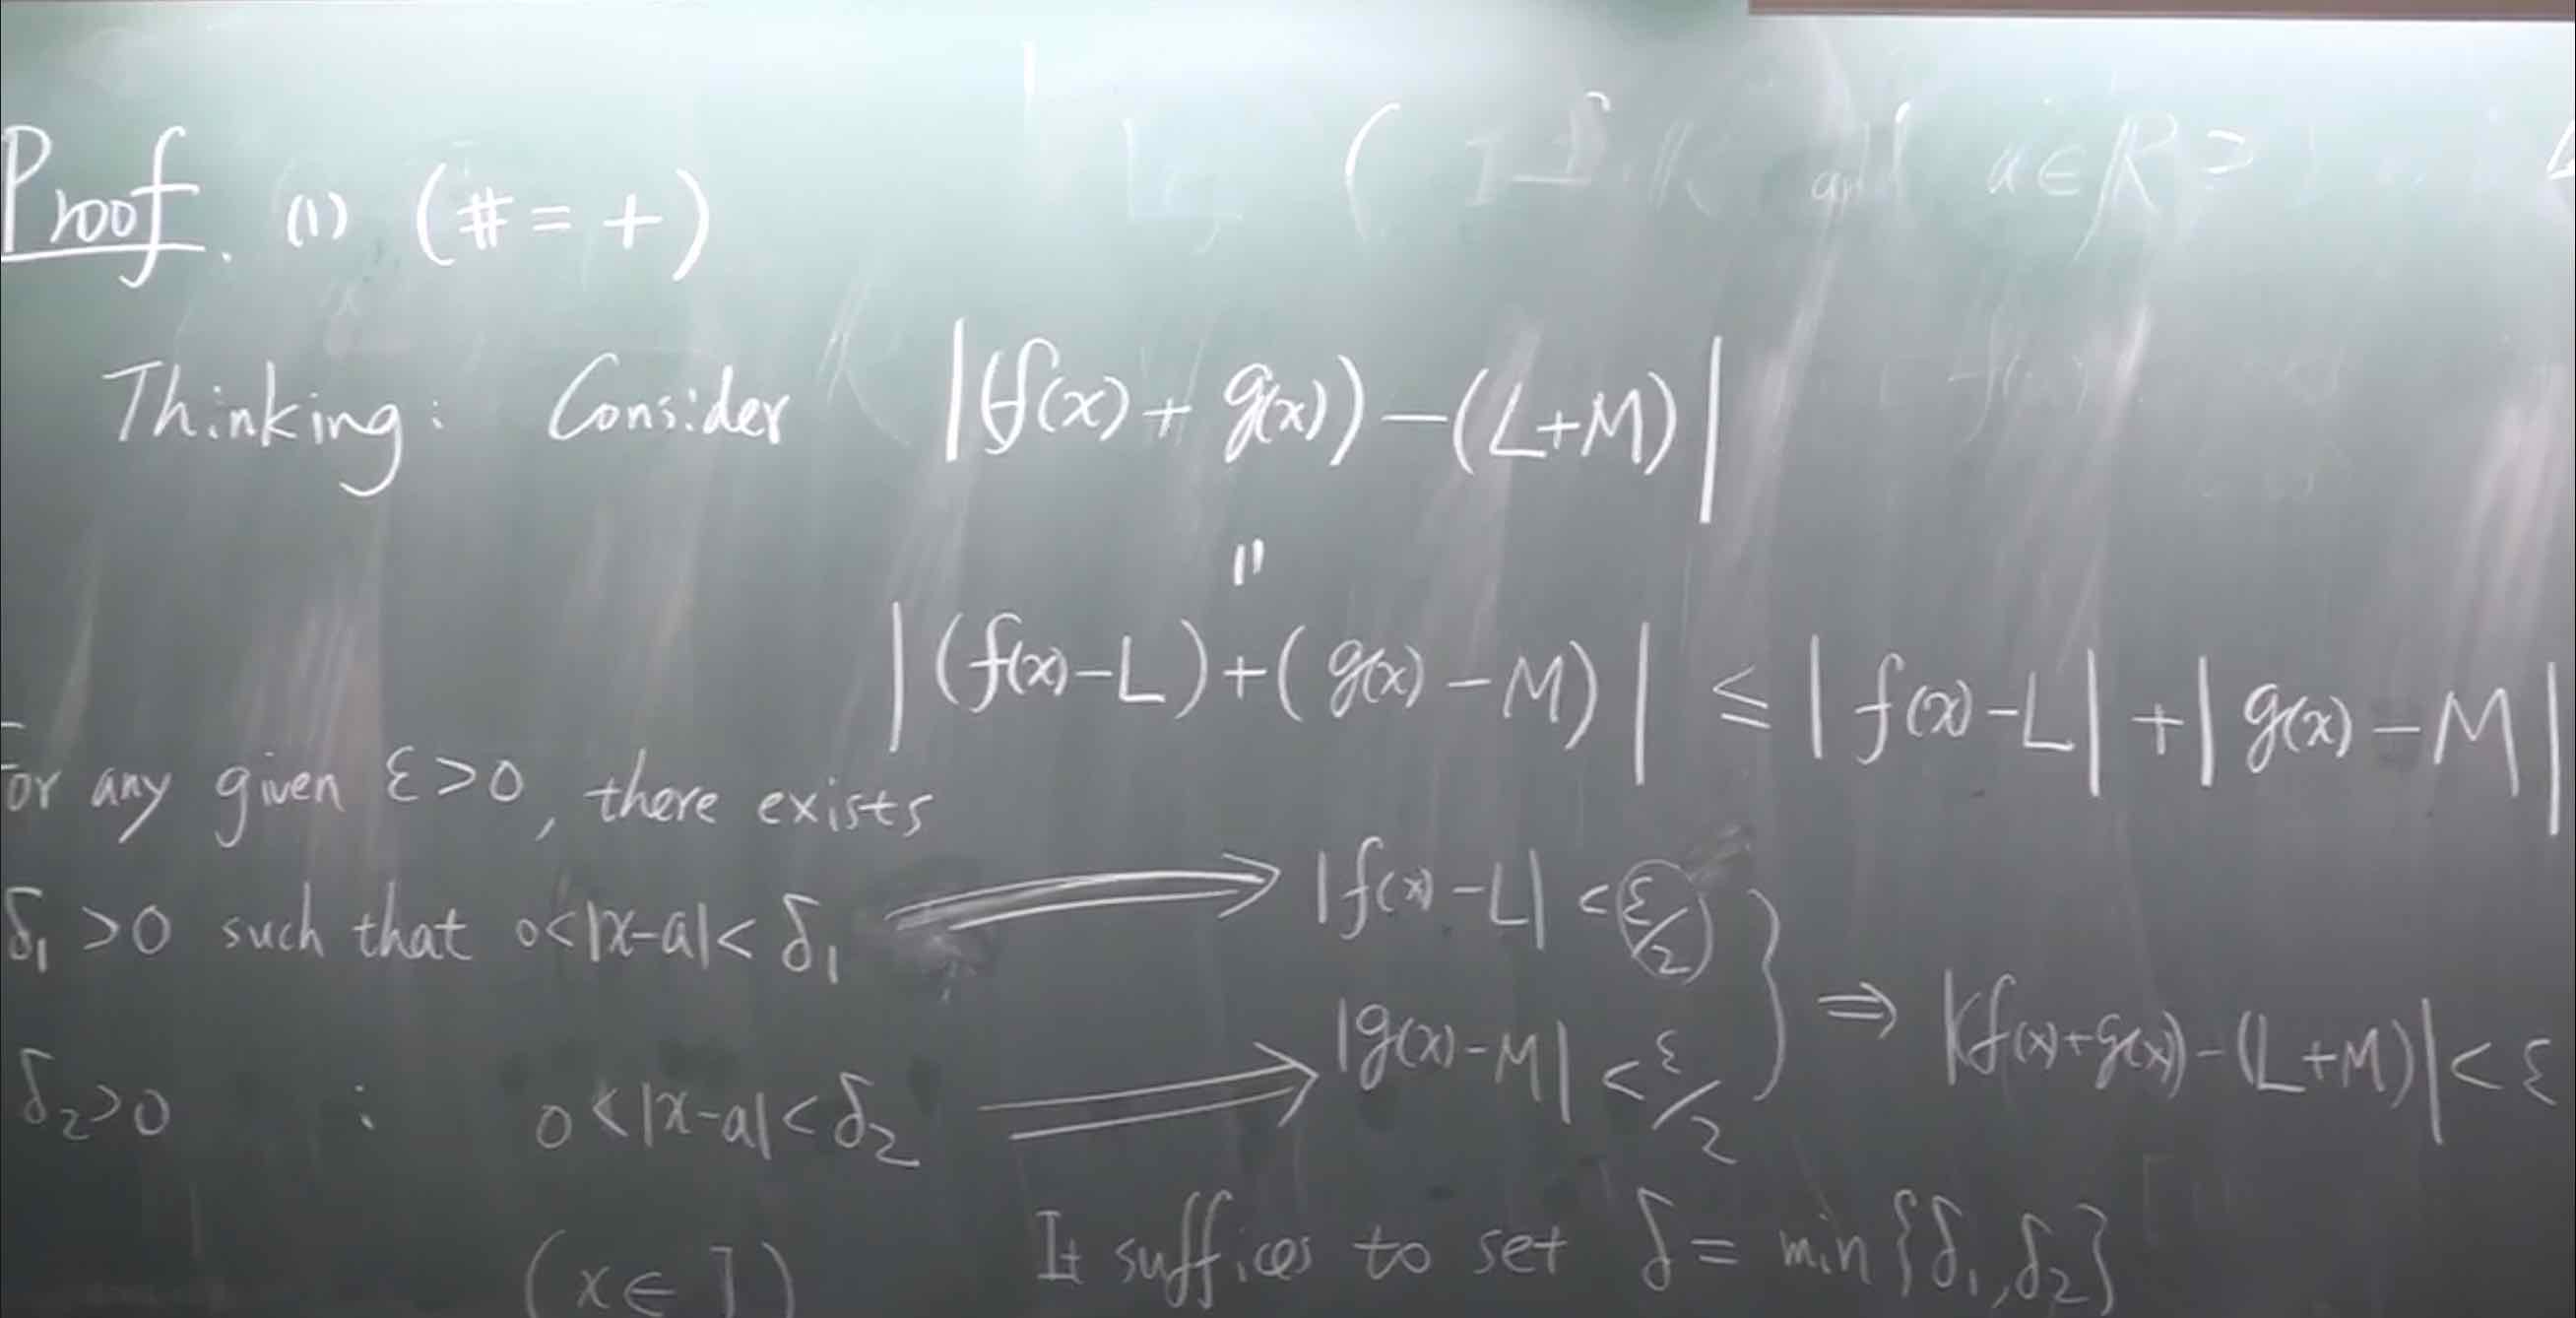 Proof. (1) (# = +)
Thinking: Consider |(f(x) + g(x)) - (L+M)|
=
|(f(x)-L) + (g(x)-M)| ≤ |f(x)-L| + |g(x)-M|
For any given ε>0, there exists
δ₁ >0 such that 0<|x-a|< δ₁ ⟹ |f(x)-L| < ε/2
δ₂>0 : 0<|x-a|<δ₂ ⟹ |g(x)-M| < ε/2 } ⇒ |(f(x)+g(x))-(L+M)|< ε
(x∈I) It suffices to set δ = min{δ₁,δ₂}